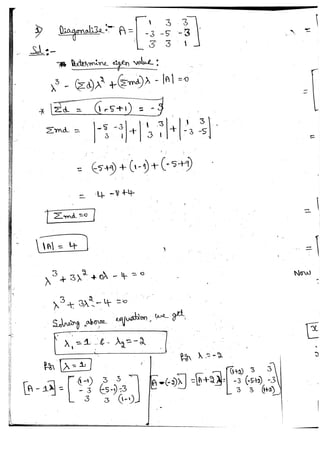 3) Diagonalize:- A = [ 1 3 3
-3 -5 -3
3 3 1 ]
Sol:-
* Determine eigen value :
λ³ - (Σd)λ² + (Σmd)λ - |A| = 0
* Σd = (1-5+1) = -3
Σmd = | -5 -3 | + | 1 3 | + | 1 3 |
| 3 1 | | 3 1 | | -3 -5 |
= (-5+9) + (1-9) + (-5+9)
= 4 - 8 + 4
Σmd = 0
|A| = 4
λ³ + 3λ² + 0λ - 4 = 0
Now
λ³ + 3λ² - 4 = 0
Solving above equation, we get
λ₁ = 1 & λ₂ = -2
for λ = 1 for λ = -2
[A - 1λ] = [ (1-1) 3 3 [A-(-2)λ] = [A+2λ] = [ (1+2) 3 3
-3 (-5-1) -3 -3 (-5+2) -3
3 3 (1-1) ] 3 3 (1+2) ]